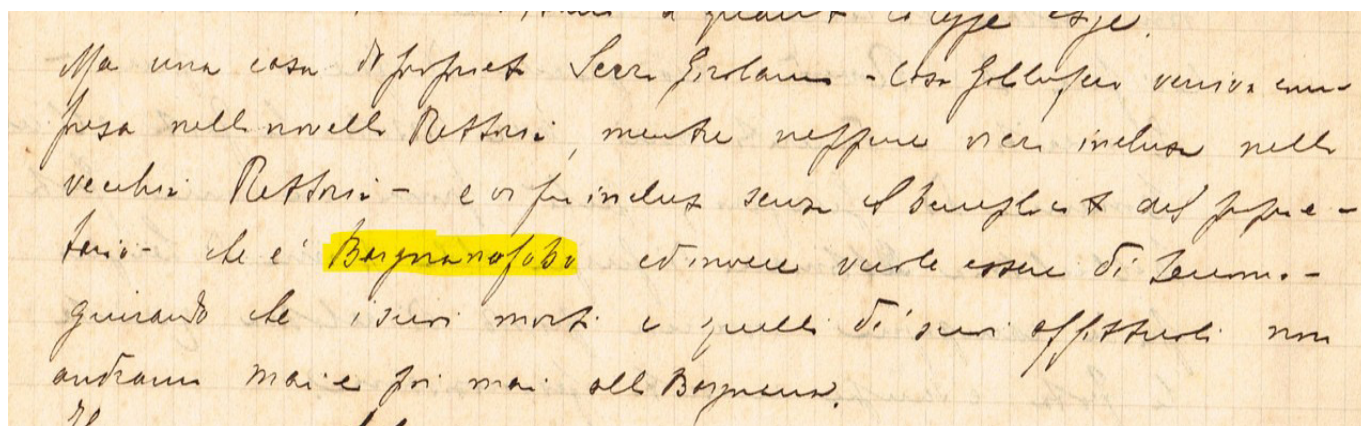 a quant legge esige.
Ma una casa di propriet Serra Girolamo - Casa veniva com-
presa nella novella Rettoria, mentre neppure viera inclusa nella
vecchia Rettoria - e vi fu inclusa senza il beneplacito del proprie-
tario - che è Borgnanofobo ed invece vuole essere di
giurando che i suoi morti e quelli di' suoi affittuoli non
andranno mai e poi mai alla Borgnana.